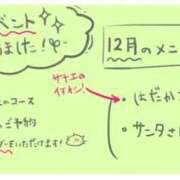 ベント
ました!
のコース
ご予約
いただけます!
サチエの
イチオシ!
12月のメニ
・はだか
・サンタさ